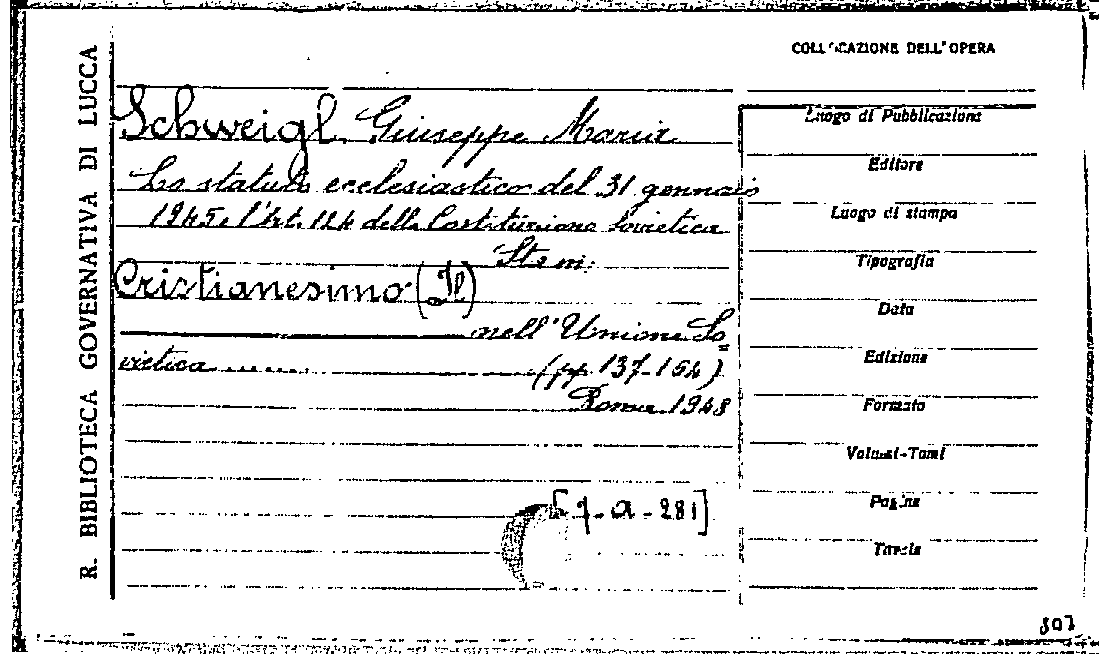 R. BIBLIOTECA GOVERNATIVA DI LUCCA
COLLOCAZIONE DELL'OPERA
Schweigl Giuseppe Maria
Lo statuto ecclesiastico del 31 gennaio
1945 e l'Art. 124 della Costituzione Sovietica
Sta in:
Cristianesimo (Il)
nell'Unione So=
vietica ........ (pp. 137-154)
Roma 1948
7-a-281]
Luogo di Pubblicazione
Editore
Luogo di stampa
Tipografia
Data
Edizione
Formato
Volumi-Tomi
Pagine
Tavole